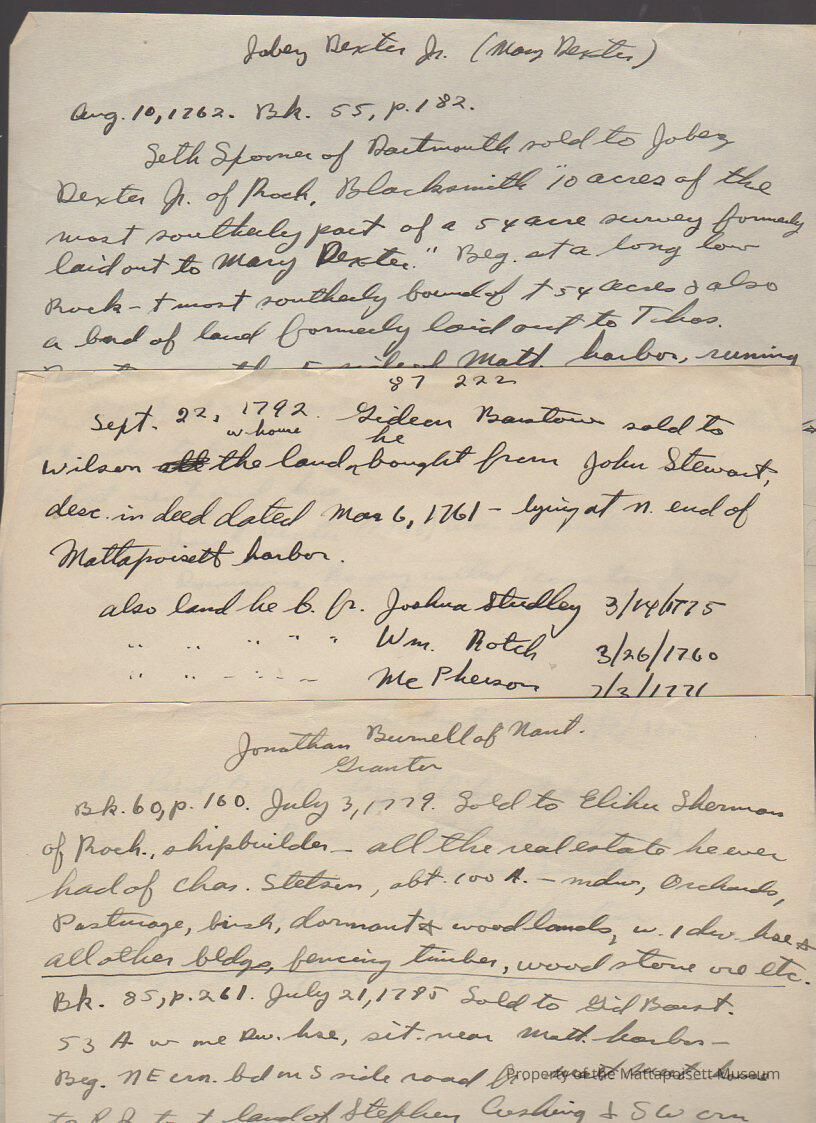 Jobey Dexter Jr. (Mary Dexter)
Aug. 10, 1762. Bk. 55, p. 182.
Seth Spooner of Dartmouth sold to Jobey
Dexter Jr. of Roch, Blacksmith "10 acres of the
most southerly part of a 54 acre survey formerly
laid out to Mary Dexter." Beg. at a long low
Rock - + most southerly bound of + 54 acres & also
a bnd of land formerly laid out to Thos.
Matt. harbor, running
87 222
Sept. 22, 1792 Gideon Barstow sold to
w. house he
Wilson all the land, bought from John Stewart,
desc. in deed dated Mar 6, 1761 - lying at n. end of
Mattapoisett harbor.
also land he b. fr. Joshua Studley 3/14/1775
" " " " " Wm. Rotch 3/26/1760
" " " " " McPherson 7/3/1771
Jonathan Burnell of Nant.
Grantor
Bk. 60, p. 160. July 3, 1779. Sold to Elihu Sherman
of Roch., shipbuilder - all the real estate he ever
had of Chas. Stetson, abt. 100 A. - mdw, Orchards,
Pasturage, bush, dormant & woodlands, w. 1 dw. hse &
all other bldgs, fencing timber, wood stone ore etc.
Bk. 85, p. 261. July 21, 1785 Sold to Gid Barst.
53 A w me Dw. hse, sit. near Matt. harbor -
Beg. NE crn. bd on S side road
land of Stephen Cushing & SW crn
Property of the Mattapoisett Museum